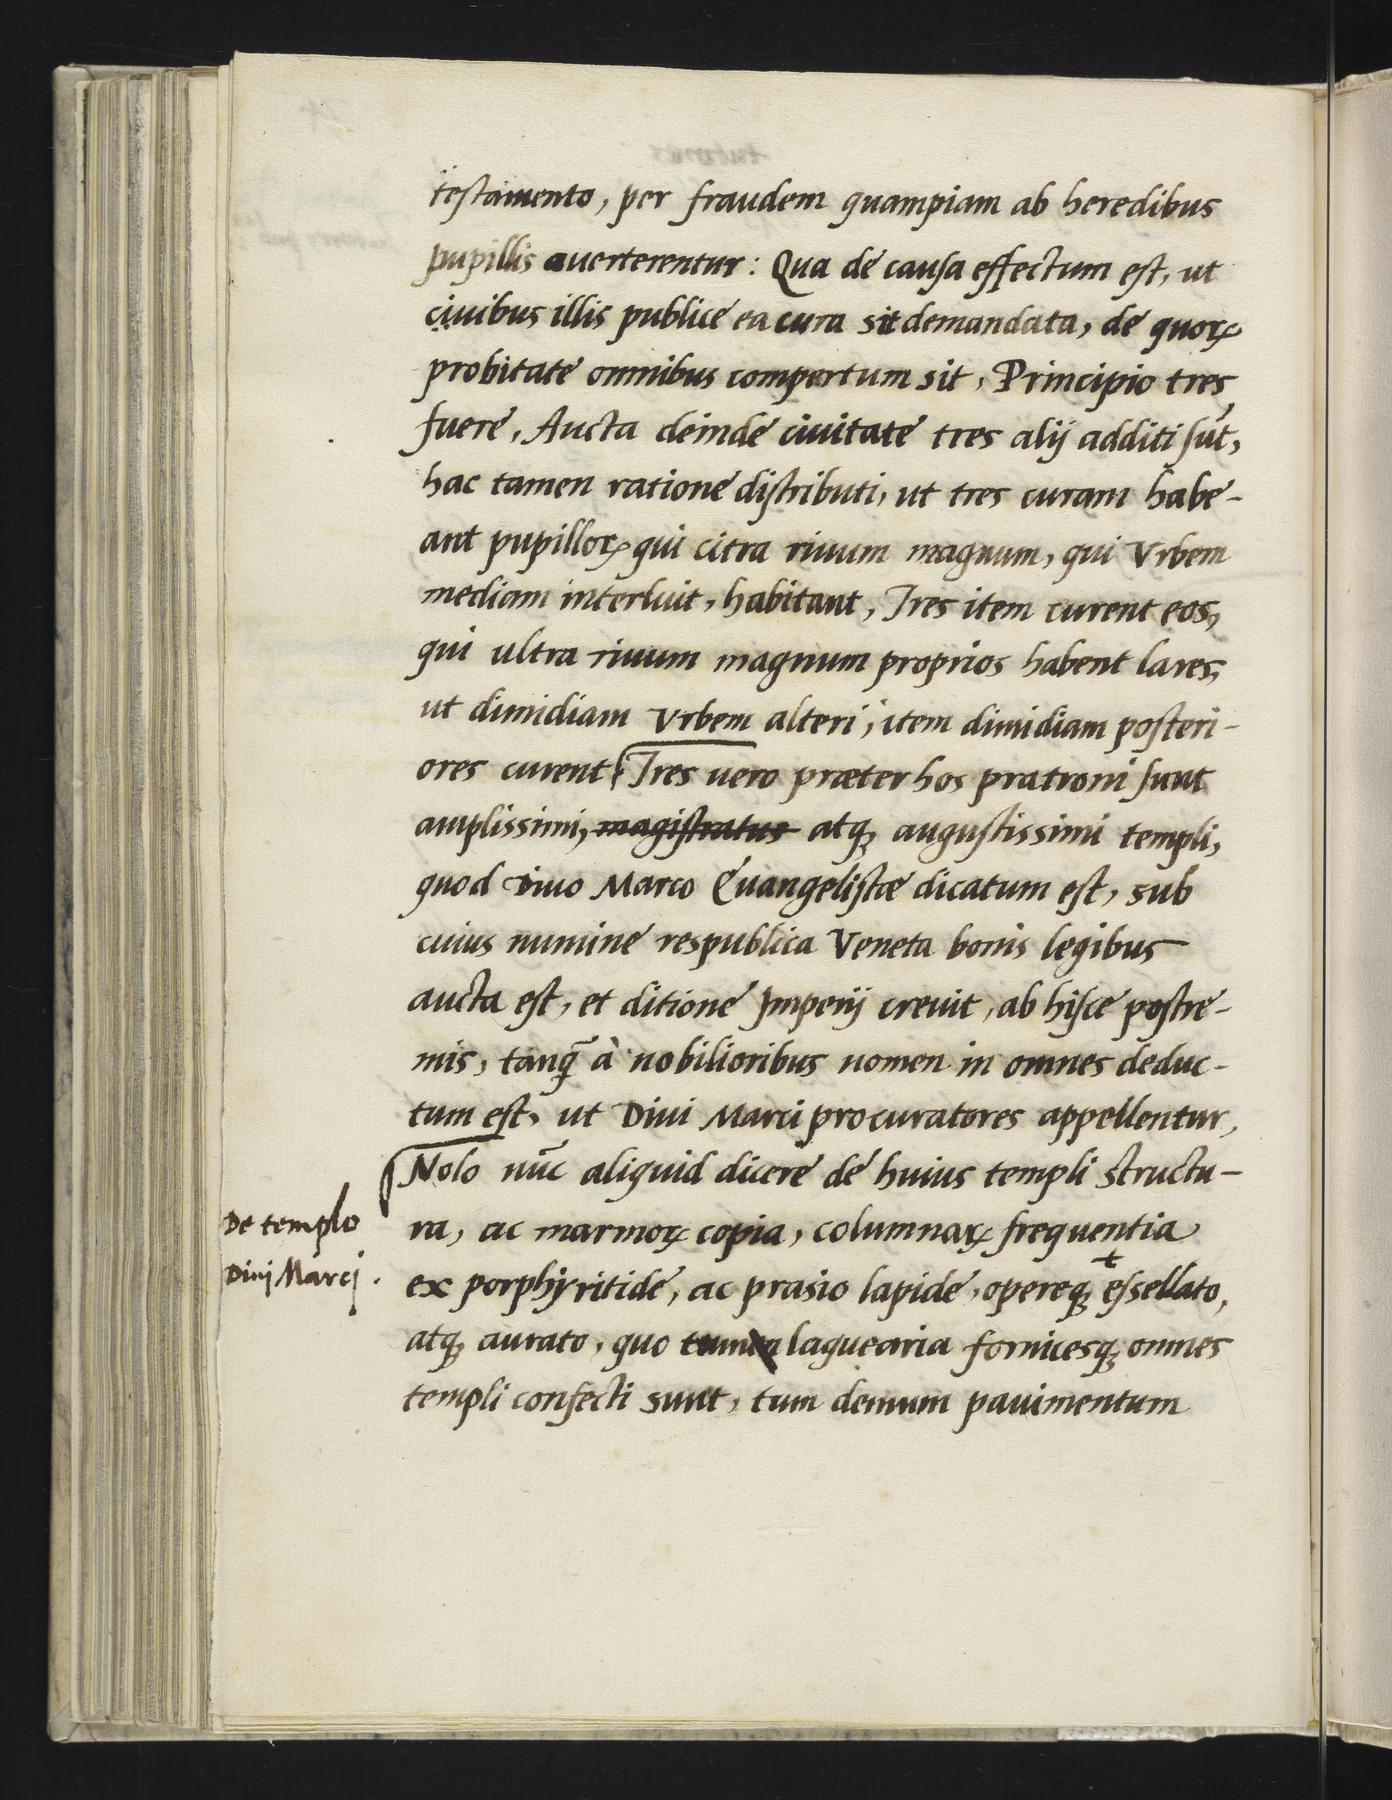 testamento, per fraudem quampiam ab heredibus
pupillis auerterentur: Qua de causa effectum est, ut
ciuibus illis publice ea cura sit demandata, de quoꝝ
probitate omnibus compertum sit, Principio tres
fuere, Aucta deinde ciuitate tres alij additi sūt,
hac tamen ratione distributi, ut tres curam habe-
ant pupilloꝝ qui citra riuum magnum, qui Vrbem
mediam interluit, habitant, Tres item curent eos,
qui ultra riuum magnum proprios habent lares,
ut dimidiam Vrbem alteri, item dimidiam posteri-
ores curent Tres uero præter hos pratroni sunt
amplissimi, magistratus atqꝫ augustissimi templi,
quod Diuo Marco Euangelistæ dicatum est, sub
cuius numine respublica Veneta bonis legibus
aucta est, et ditione Imperij creuit, ab hisce postre-
mis, tanq̃ à nobilioribus nomen in omnes deduc-
tum est, ut Diui Marci procuratores appellentur,
Nolo nūc aliquid dicere de huius templi structu-
De templo
Diui Marci.
ra, ac marmoꝝ copia, columnaꝝ frequentia
ex porphyritide, ac prasio lapide, opereqꝫ tessellato,
atqꝫ aurato, quo tamen laquearia fornicesqꝫ omnes
templi confecti sunt, tum demum pauimentum